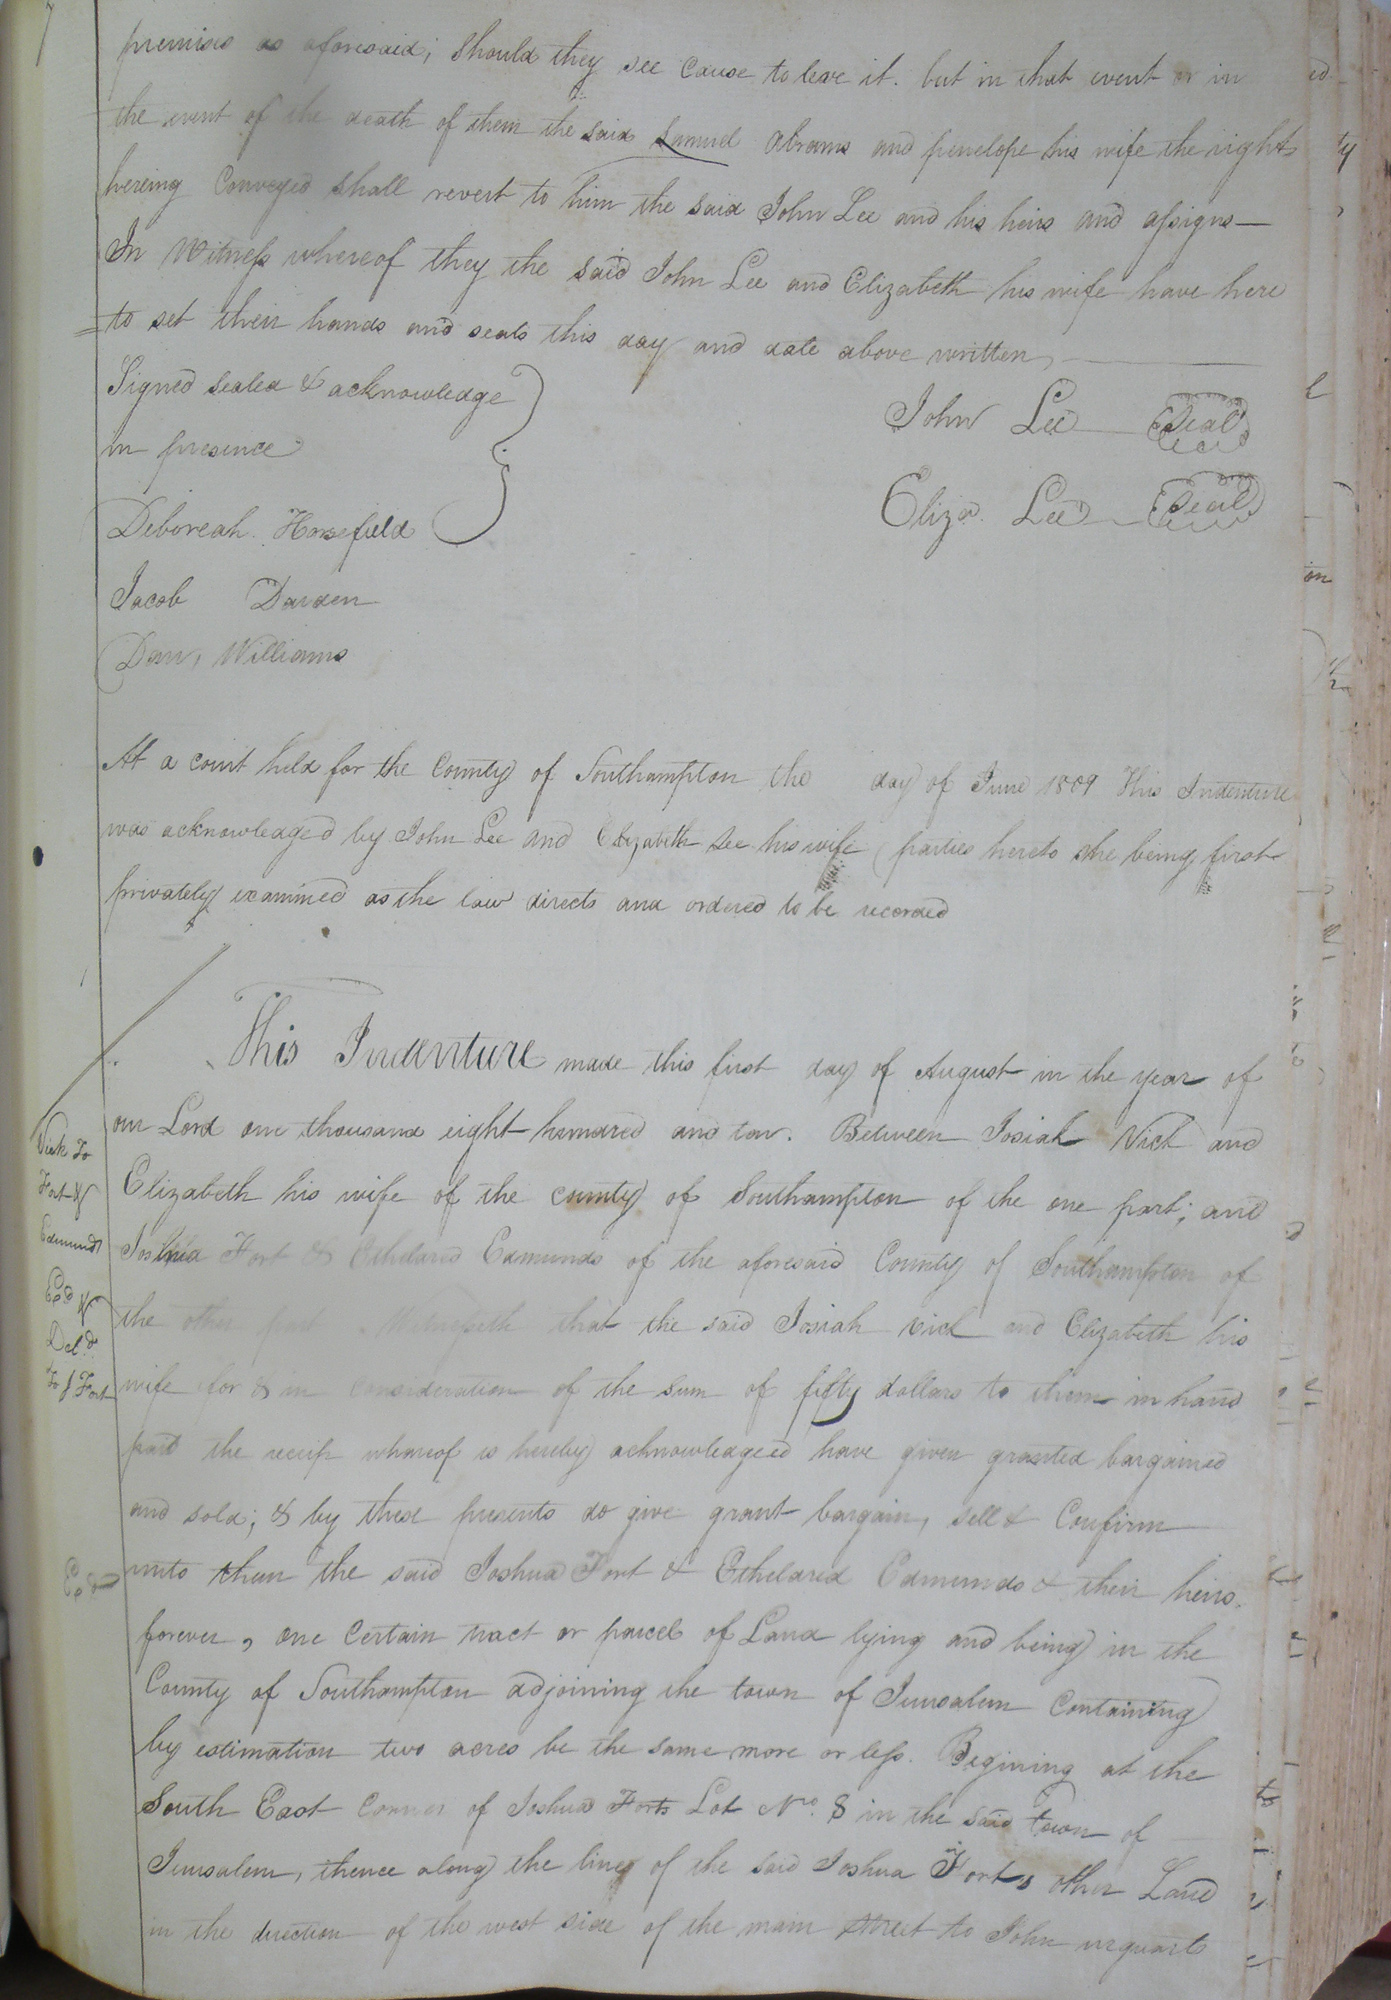 7
premises as aforesaid; should they see cause to leave it. but in that event or in
the event of the death of them the said Samuel Abrams and penelope his wife the right
hereing Conveyed shall revert to him the said John Lee and his heirs and assigns—
In Witness whereof they the said John Lee and Elizabeth his wife have here
to set their hands and seals this day and date above written,
Signed sealed & acknowledge
in presence
John Lee Seal
Eliza. Lee Seal
Deboreah Horsefield
Jacob Darden
Dan, Williams
At a court held for the County of Southampton the day of June 1809 This Indenture
was acknowledged by John Lee and Elizabeth Lee his wife parties hereto she being first
privately examined as the law directs and ordered to be recorded
This Indenture made this first day of August in the year of
our Lord one thousand eight hundred and tow. Between Josiah Vick and
Elizabeth his wife of the county of Southampton of the one part; and
Joshua Fort & Etheldred Edmunds of the aforesaid County of Southampton of
the other part Witnesseth that the said Josiah vick and Elizabeth his
wife for & in Consideration of the sum of fifty dollars to them in hand
paid the recip whareof is hereby acknowledgeed have given granted bargained
and sold; & by these presents do give grant bargain, sell & Confirm
unto them the said Joshua Fort & Etheldred Edmunds & their heirs.
forever, one Certain tract or parcel of Land lying and being in the
County of Southampton adjoining the town of Jerusalem Containing
by estimation two acres be the same more or less. Begining at the
South East Corner of Joshua Forts Lot No. 8 in the said Town of
Jerusalem, thence along the lines of the said Joshua Forts other Land
in the direction of the west side of the main street to John urquarts
Vick To
Fort &
Edmunds
Exd &
Deld.
To J Fort
Exd